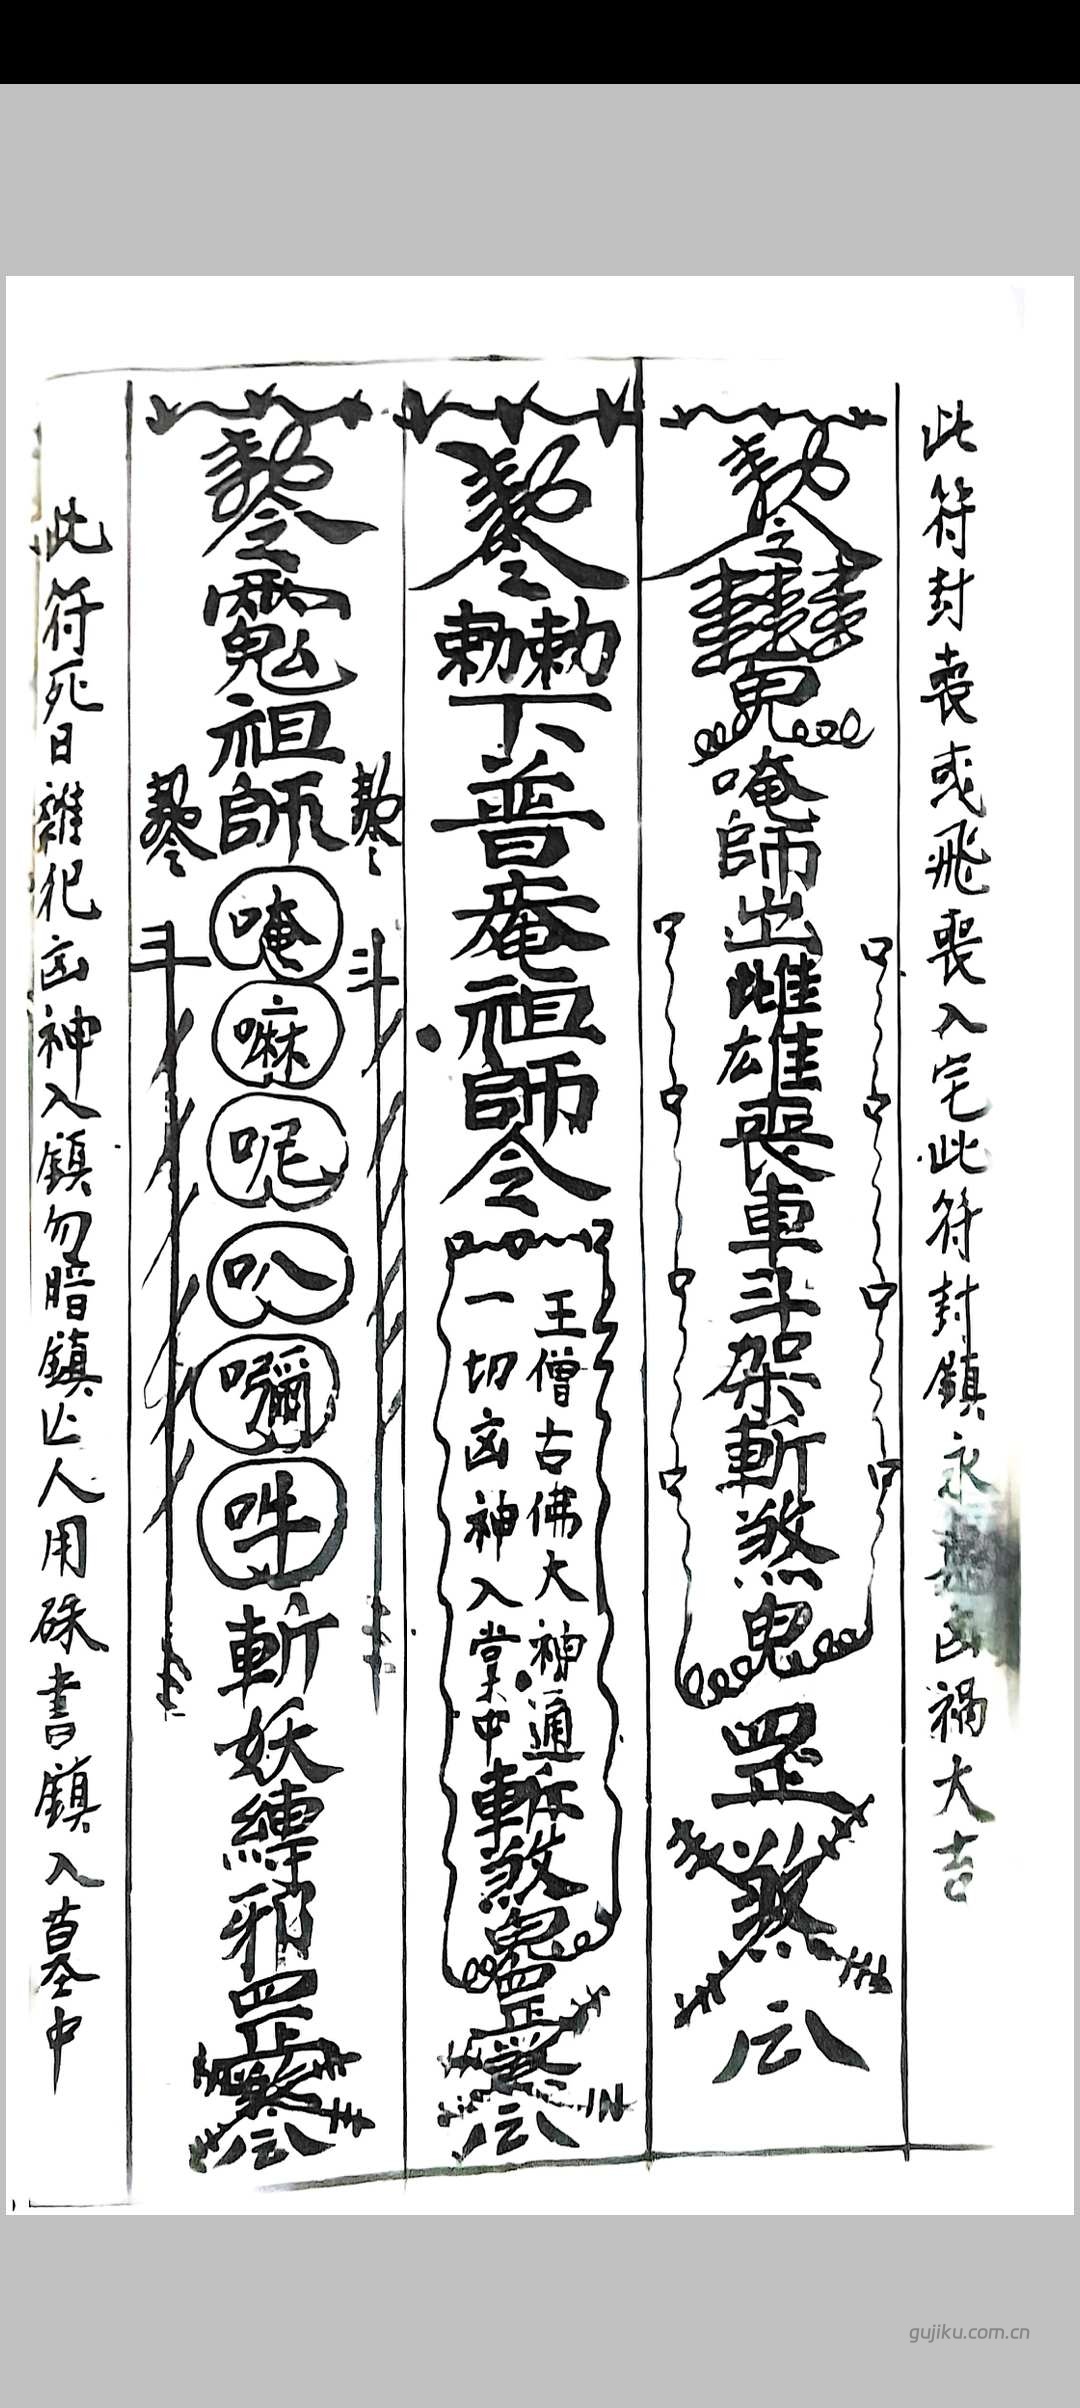 此符封喪或飛喪入宅此符封鎮永無凶禍大吉
唵師出雌雄喪車斗架斬煞鬼罡煞
勅勅下普庵祖師令
王僧古佛大神通
一切凶神入掌中
斬煞鬼罡
祖師唵嘛呢叭嚩吽斬妖縛邪罡
斗
斗
此符死日雜犯凶神入鎮勿暗鎮亡人用硃書鎮入墓中
gujiku.com.cn